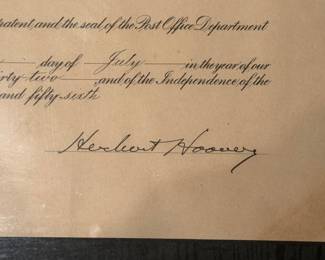 patent, and the seal of the Post Office Department
day of July in the year of our
two, and of the Independence of the
and fifty sixth
Herbert Hoover